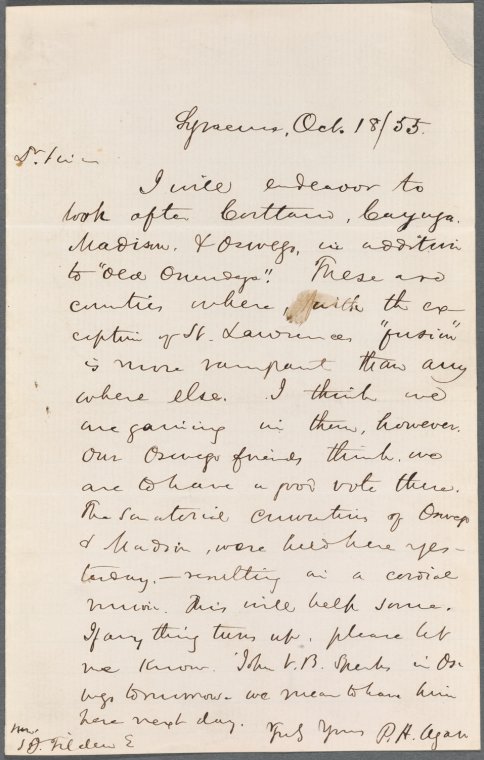 Syracuse, Oct. 18/55.
Dr. Sir
I will endeavor to
look after Cortland, Cayuga,
Madison, & Oswego, in addition
to "Old Onondaga". These are
counties where, with the ex-
ception of St. Lawrence "fusion"
is more rampant than any
where else. I think we
are gaining in them, however.
Our Oswego friends think we
are to have a good vote there.
The Senatorial conventions of Oswego
& Madison, were held here yes-
terday, - resulting in a cordial
union. This will help some.
If any thing turns up, please let
me know. John V. B. speaks in Os-
wego tomorrow - we mean to have him
here next day. Truly Yours P. H. Agan
Hon.
S J. Tilden E